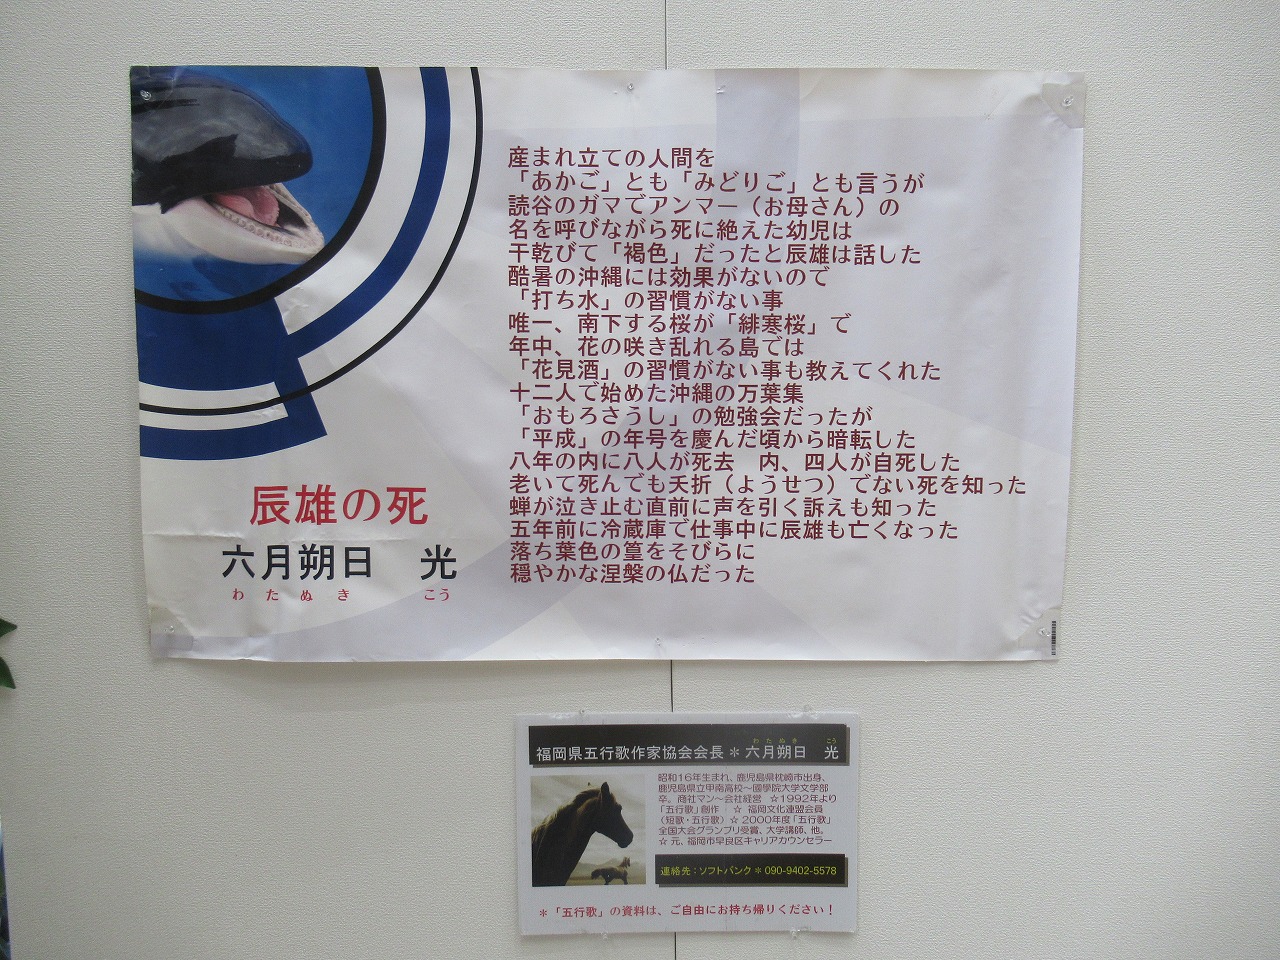 産まれ立ての人間を
「あかご」とも「みどりご」とも言うが
読谷のガマでアンマー（お母さん）の
名を呼びながら死に絶えた幼児は
干乾びて「褐色」だったと辰雄は話した
酷暑の沖縄には効果がないので
「打ち水」の習慣がない事
唯一、南下する桜が「緋寒桜」で
年中、花の咲き乱れる島では
「花見酒」の習慣がない事も教えてくれた
十二人で始めた沖縄の万葉集
「おもろさうし」の勉強会だったが
「平成」の年号を慶んだ頃から暗転した
八年の内に八人が死去　内、四人が自死した
老いて死んでも夭折（ようせつ）でない死を知った
蝉が泣き止む直前に声を引く訴えも知った
五年前に冷蔵庫で仕事中に辰雄も亡くなった
落ち葉色の篁をそびらに
穏やかな涅槃の仏だった
辰雄の死
六月朔日　光
わたぬき　こう
福岡県五行歌作家協会会長＊六月朔日　光
わたぬき　こう
昭和16年生まれ、鹿児島県枕崎市出身、
鹿児島県立甲南高校～國學院大学文学部
卒。商社マン～会社経営　☆1992年より
「五行歌」創作　☆ 福岡文化連盟会員
（短歌・五行歌）☆ 2000年度「五行歌」
全国大会グランプリ受賞、大学講師、他。
☆ 元、福岡市早良区キャリアカウンセラー
連絡先：ソフトバンク＊090-9402-5578
＊「五行歌」の資料は、ご自由にお持ち帰りください！